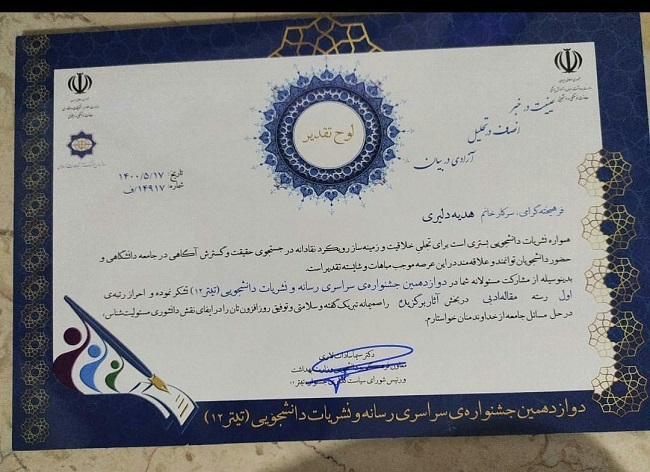 عینیت در خبر
انصاف در تحلیل
آزادی در بیان
لوح تقدیر
تاریخ: ۱۴۰۰/۵/۱۷
شماره: ۱۴۹۱۷/ف
فرهیخته‌گرامی، سرکار خانم هدیه دلیری
همواره نشریات دانشجویی بستری است برای تجلی خلاقیت و زمینه‌ساز رویکرد نقادانه در جستجوی حقیقت و گسترش آگاهی در جامعه دانشگاهی و
حضور دانشجویان توانمند و علاقه‌مند در این عرصه موجب مباهات و شایسته تقدیر است.
بدینوسیله از مشارکت مسئولانه شما در دوازدهمین جشنواره‌ی سراسری رسانه و نشریات دانشجویی (تیتر۱۲) تشکر نموده و احراز رتبه‌ی
اول رسته مقاله‌ادبی در بخش آثار برگزیده را صمیمانه تبریک گفته و سلامتی و توفیق روزافزون‌تان را در ایفای نقش دانشوری مسئولیت‌شناس،
در حل مسائل جامعه از خداوند منان خواستارم.
دکتر سیما سادات لاری
معاون بهداشت
و رئیس شورای سیاست
دوازدهمین جشنواره‌ی سراسری رسانه و نشریات دانشجویی (تیتر۱۲)